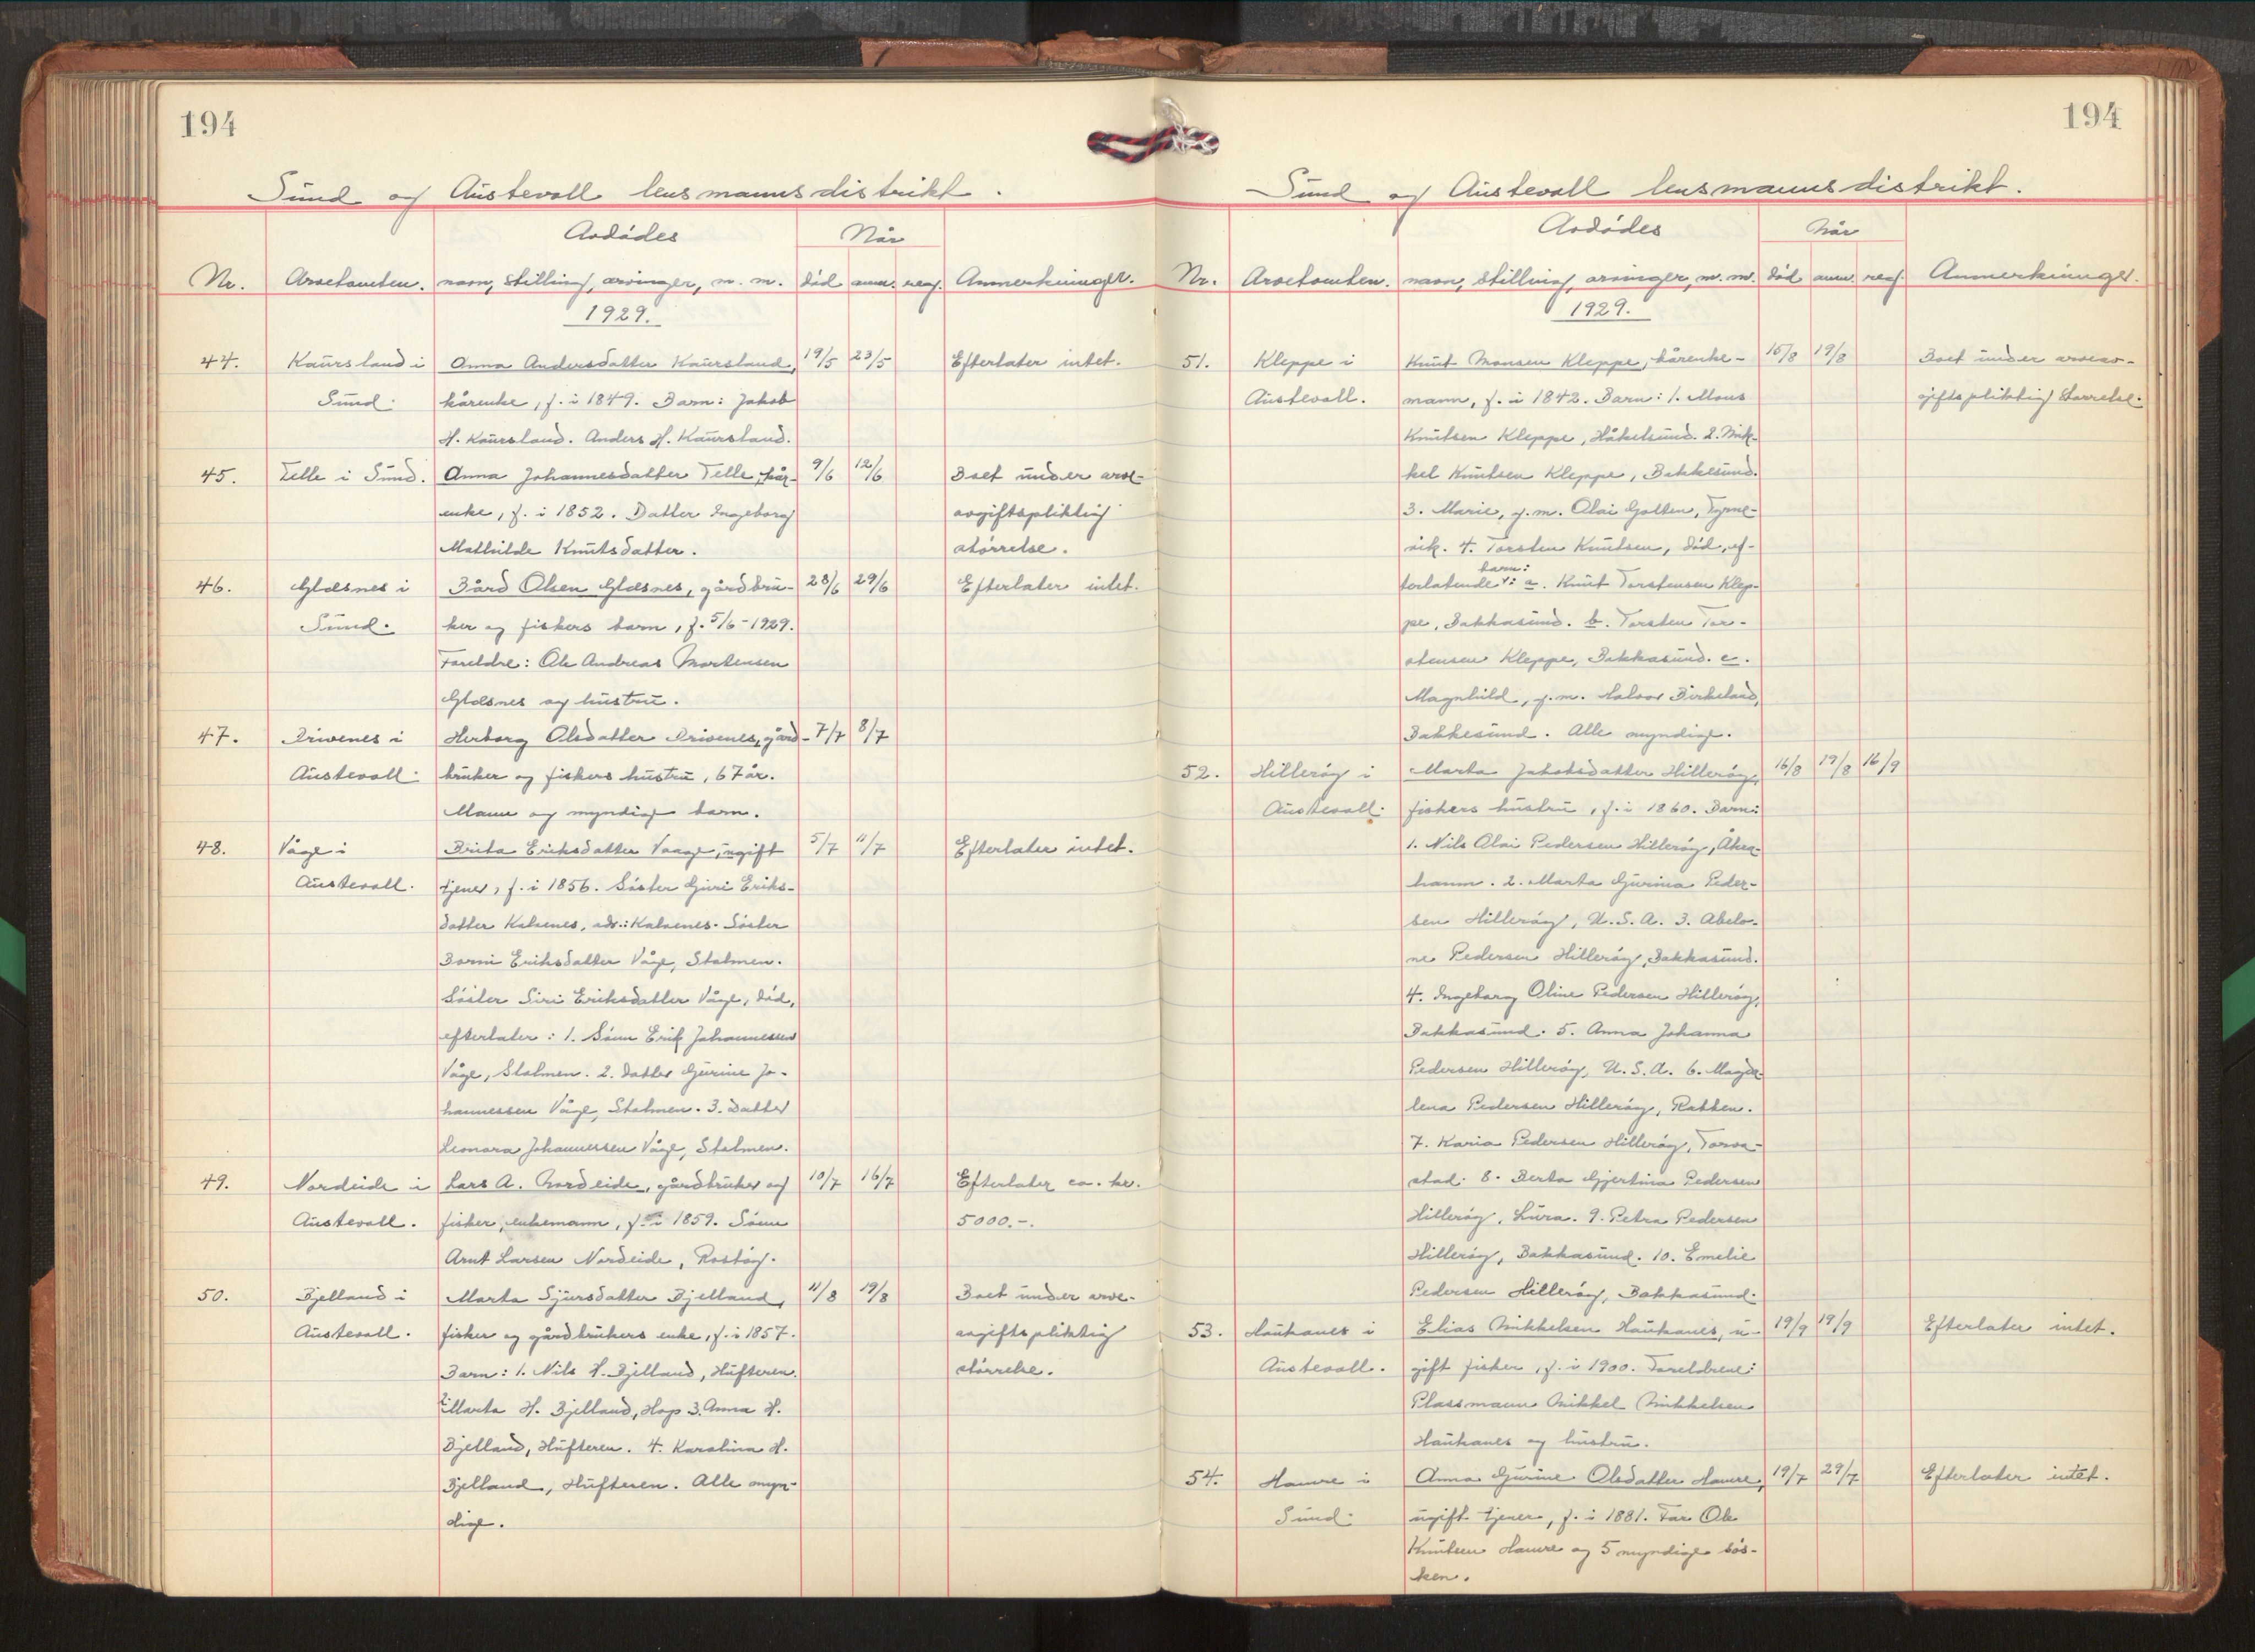 194
Sund og Austevoll lensmannsdistrikt.
Avdødes
Når
Nr. Arvetomten. navn, stilling, arvinger, m. m. død anm. reg. Anmerkninger.
1929.
44. Kaursland i Anna Andersdatter Kaursland, 19/5 23/5 Efterlater intet.
Sund. kårenke, f. i 1849. Barn: Jakob
H. Kaursland. Anders H. Kaursland.
45. Telle i Sund. Anna Johannesdatter Telle, kår- 9/6 12/6 Boet under arve-
enke, f. i 1852. Datter Ingeborg avgiftspliktig
Mathilde Knutsdatter. størrelse.
46. Glæsnes i Bård Olsen Glæsnes, gårdbru- 28/6 29/6 Efterlater intet.
Sund. ker og fiskers barn, f. 5/6-1929.
Foreldre: Ole Andreas Mortensen
Glæsnes og hustru.
47. Drivenes i Herborg Olsdatter Drivenes, gård- 7/7 8/7
Austevoll. bruker og fiskers hustru, 67 år.
Mann og myndige barn.
48. Våge i Brita Eriksdatter Vaage, ugift 5/7 11/7 Efterlater intet.
Austevoll. tjener, f. i 1856. Søster Guri Eriks-
datter Kalvenes, adr.: Kalvenes. Søster
Borni Eriksdatter Våge, Stolmen.
Søster Siri Eriksdatter Våge, død,
efterlater: 1. Sønn Erik Johannessen
Våge, Stolmen. 2. Datter Gurine Jo-
hannessen Våge, Stolmen. 3. Datter
Leonora Johannessen Våge, Stolmen.
49. Nordeide i Lars A. Nordeide, gårdbruker og 10/7 16/7 Efterlater ca. kr.
Austevoll. fisker, enkemann, f. i 1859. Sønn 5000.-.
Arnt Larsen Nordeide, Rostøy.
50. Bjelland i Marta Sjursdatter Bjelland, 11/8 19/8 Boet under arve-
Austevoll. fisker og gårdbrukers enke, f. i 1857. avgiftspliktig
Barn: 1. Nils H. Bjelland, Huftaren. størrelse.
2. Marta H. Bjelland, Hop 3. Anna H.
Bjelland, Hufteren. 4. Karolina H.
Bjelland, Hufteren. Alle myn-
dige.
194
Sund og Austevoll lensmannsdistrikt.
Avdødes
Når
Nr. Arvetomten. navn, stilling, arvinger, m. m. død anm. reg. Anmerkninger.
1929.
51. Kleppe i Knut Monsen Kleppe, kårenke- 15/8 19/8 Boet under arveav-
Austevoll. mann, f. i 1842. Barn: 1. Mons giftspliktig størrelse.
Knutsen Kleppe, Håkelsund. 2. Mik-
kel Knutsen Kleppe, Bakkesund.
3. Marie, g. m. Olai Golten,
vik. 4. Torsten Knutsen, død, ef-
barn:
terlatende: a. Knut Torstensen Klep-
pe, Bakkasund. b. Torsten Tor-
stensen Kleppe, Bakkasund. c.
Magnhild, g. m. Halvor Birkeland,
Bakkesund. Alle myndige.
52. Hillerøy i Marta Jakobsdatter Hillerøy, 16/8 19/8 16/9
Austevoll. fiskers hustru, f. i 1860. Barn:
1. Nils Olai Pedersen Hillerøy, Åker-
hamn. 2. Marta Gurina Peder-
sen Hillerøy, U. S. A. 3. Abelo-
ne Pedersen Hillerøy, Bakkasund.
4. Ingeborg Oline Pedersen Hillerøy,
Bakkasund. 5. Anna Johanna
Pedersen Hillerøy, U. S. A. 6. Magda-
lena Pedersen Hillerøy, Rabben.
7. Karia Pedersen Hillerøy, Torva-
stad. 8. Berta Gjertina Pedersen
Hillerøy, Lura. 9. Petra Pedersen
Hillerøy, Bakkasund. 10. Emelie
Pedersen Hillerøy, Bakkasund.
53. Haukanes i Elias Mikkelsen Haukanes, u- 19/9 19/9 Efterlater intet.
Austevoll. gift fisker, f. i 1900. Foreldrene:
Plassmann Mikkel Mikkelsen
Haukanes og hustru.
54. Hamre i Anna Gurine Olsdatter Hamre, 19/7 29/7 Efterlater intet.
Sund. ugift tjener, f. i 1881. Far Ole
Knutsen Hamre og 5 myndige søs-
ken.